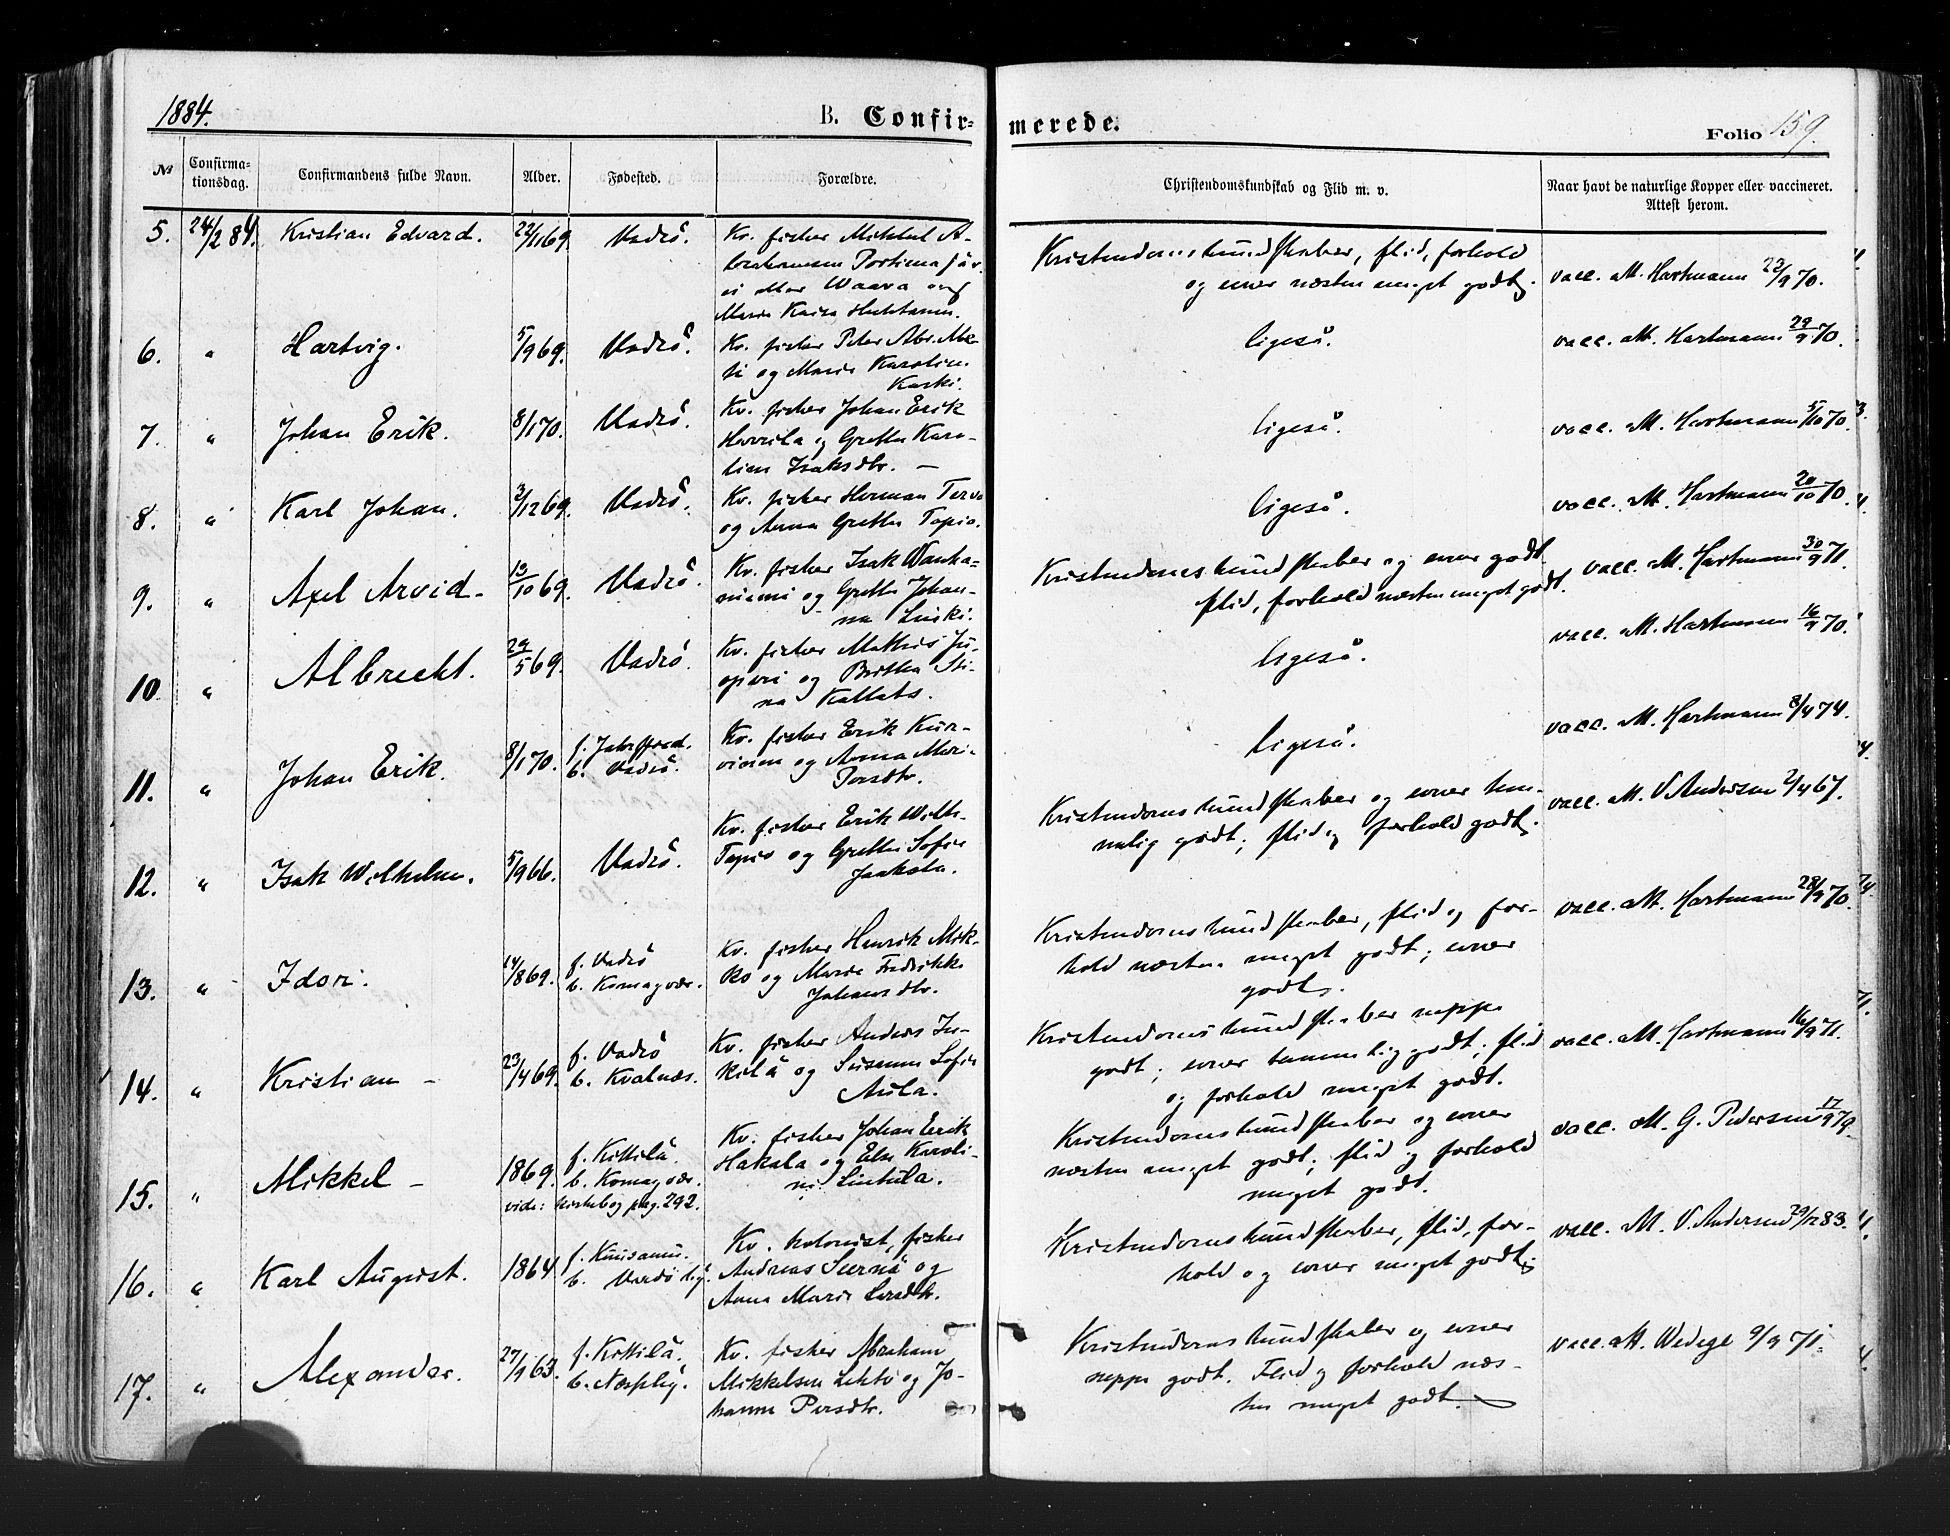 1884.
B. Confir-
merede.
Folio 159.
No
Confirma-
tionsdag.
Confirmandens fulde Navn.
Alder.
Fødested.
Forældre.
Christendomskundskab og Flid m. v.
Naar havt de naturlige Kopper eller vaccineret.
Attest herom.
5. 24/2 84. Kristian Edvard. 22/1 69. Vadsö. Kv. fisker Mikkel A-
brahamsen Portimojär-
vi eller Waara og
Marie Kaisa
Kristendomskundskaber, flid, forhold
og evner næsten meget godt.
vacc. att. Hartmann 23/9 70.
6. " Hartvig. 5/9 69. Vadsö. Kv. fisker Peter Abr.
og Marie Karoline
Karki.
ligeså.
vacc. att. Hartmann 29/9 70.
7. " Johan Erik. 8/1 70. Vadsö. Kv. fisker Johan Erik
og Grethe Karo-
line Isaksdtr. —
ligeså.
vacc. att. Hartmann 5/10 70.
8. " Karl Johan. 3/12 69. Vadsö. Kv. fisker Herman Tervo
og Anna Grethe Tapio.
ligeså.
vacc. att. Hartmann 20/10 70.
9. " Axel Arvid. 13/10 69. Vadsö. Kv. fisker Isak Wanha-
niemi og Grethe Johan-
na
Kristendomskundskaber og evner godt.
flid, forhold næsten meget godt.
vacc. att. Hartmann 30/9 71.
10 " Albrecht. 29/5 69. Vadsö. Kv. fisker Mathis Ju-
og Britha Sti-
na
ligeså.
vacc. att. Hartmann 16/9 70.
11. " Johan Erik. 8/1 70. f.
b. Vadsö. Kv. fisker Erik Kur-
vinen og Anna Mari
Persdtr.
ligeså.
vacc. att. Hartmann 8/4 74.
12. " Isak Wilhelm. 5/9 66. Vadsö. Kv. fisker Erik Wilh.
Tapio og Grethe Sofie
Jaakola.
Kristendomskundskaber og evner tem-
melig godt; flid og forhold godt.
vacc. att. V. Andersen 2/4 67.
13. " Idor. 14/8 69. f. Vadsö
b. Komagvær. Kv. fisker Henrik Mik-
ko og Marie Fredrikke
Johansdtr.
Kristendomskundskaber, flid og for-
hold næsten meget godt; evner
godt.
vacc. att. Hartmann 28/9 70.
14. " Kristian — 23/4 69. f. Vadsö
b. Kvalnæs. Kv. fisker Anders In-
kilä og Susanna Sofie
Aula.
Kristendomskundskaber neppe
godt; evner temmelig godt; flid
og forhold meget godt.
vacc. att. Hartmann 16/9 71.
15. " Mikkel — 1869. f. Kittilä.
b. Komagvær.
vide: kirkebog pag. 292.
Kv. fisker Johan Erik
Hakala og Else Karoli-
ne Lintula.
Kristendomskundskaber og evner
næsten meget godt; flid og forhold
meget godt.
vacc. att. G. Pedersen 17/9 79.
16. " Karl August. 1864 f. Kuusamo.
b. Vardö
Kv. kolonist, fisker
Andreas Seernä og
Anna Marie Larsdtr.
Kristendomskundskaber, flid, for-
hold og evner meget godt.
vacc. att. V. Andersen 29/12 83.
17. " Alexander. 27/9 63. f. Kittilä.
b. Kv. fisker Abraham
Mikkelsen Lehto og Jo-
hanna Persdtr.
Kristendomskundskaber og evner
neppe godt. Flid og forhold næs-
ten meget godt.
vacc. att. Wedege 9/9 71.